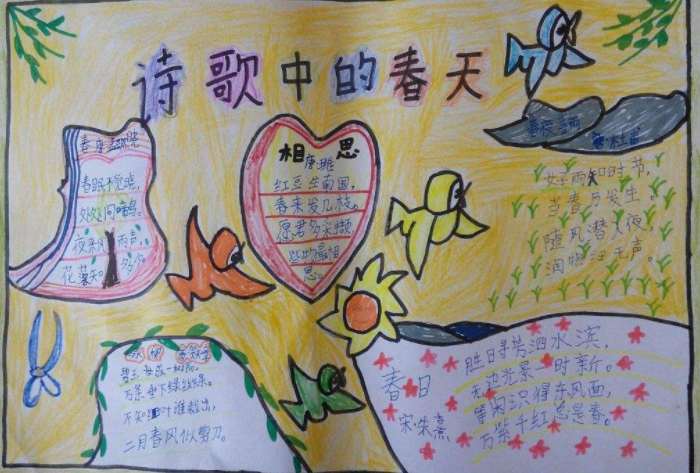 诗歌中的春天
春 晓
春眠不觉晓,
处处闻啼鸟。
夜来风雨声,
花落知多少
相 思
唐
红豆生南国,
春来发几枝。
愿君多采撷,
此物最相思。
春夜喜雨
唐杜甫
好雨知时节,
当春乃发生。
随风潜入夜,
润物细无声。
咏柳
碧玉妆成一树高,
万条垂下绿丝绦。
不知细叶谁裁出,
二月春风似剪刀。
春日
宋·朱熹
胜日寻芳泗水滨,
无边光景一时新。
等闲识得东风面,
万紫千红总是春。